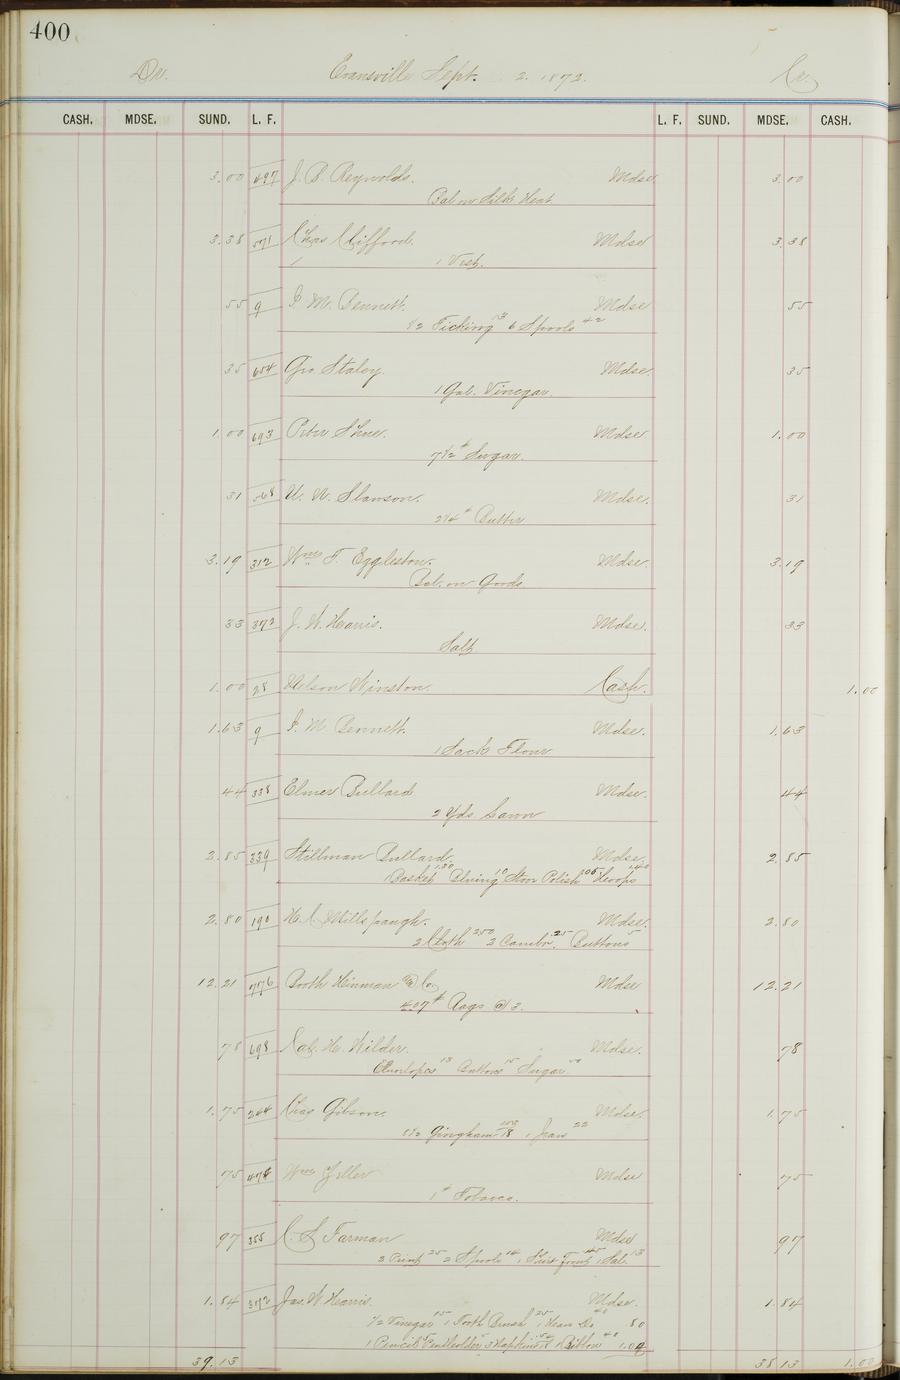 400
Dr. Evansville Sept. 2. 1872. Cr.
CASH. MDSE. SUND. L. F. L. F. SUND. MDSE. CASH.
3.00 497 J. P. Reynolds. Mdse 3.00
Bal on Silk
3.38 571 Chas Clifford. Mdse 3.38
1 Vest.
55 9 Bennett. Mdse 55
1/2 Ticking 13 6 Spools 42
35 654 Geo Staley. Mdse. 35
1 Gal. Vinegar.
1.00 693 Peter Mdse. 1.00
7 1/2 # Sugar.
31 568 W. Slawson. Mdse. 31
2 1/4 # Butter
3.19 312 Wm T. Eggleston. Mdse. 3.19
Bal. on Goods
33 372 J. W. Harris. Mdse. 33
Salt
1.00 28 Nelson Winston. Cash. 1.00
1.63 9 Bennett. Mdse. 1.63
1 Sack Flour
44 338 Elmer Bullard Mdse. 44
2 Yds Lawn
2.85 339 Stillman Bullard. Mdse. 2.85
1 Basket 1.30 Bluing 10 Stove Polish Hoops
2.80 190 H. Millspaugh. Mdse. 2.80
2 Cloth 250 2 Cambr. 25 Buttons 5
12.21 776 Booth Hinman & Co. Mdse 12.21
407 # Rags @ 3.
78 698 H. Wilder. Mdse. 78
Envelopes 13 Buttons 15 Sugar 50
1.75 264 Chas Gibson. Mdse. 1.75
8 1/2 Gingham 153/18 1 Jean 22
75 474 Wm Mdse 75
1 # Tobacco.
97 355 C. S. Farman Mdse 97
2 Print 25 2 Spools 14 1 Shirt Front 45 1 Sal. 13
1.84 372 Jas. W. Harris. Mdse. 1.84
1/2 Vinegar 15 1 Tooth Brush 25 1 Do 40 80
1 Pencil 5 Penholder 5 3 Napkins 1 Ribbon 40 1.04
39.13 38 13 1.00